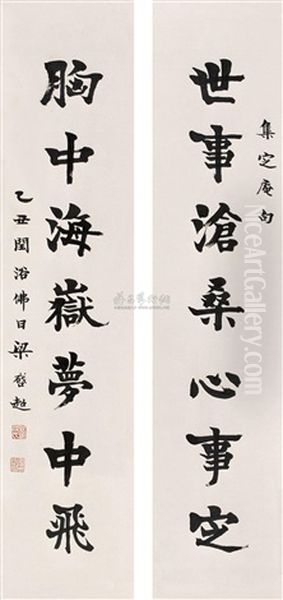 集定庵句
世事滄桑心事定
胸中海嶽夢中飛
乙丑閏浴佛日梁啓超